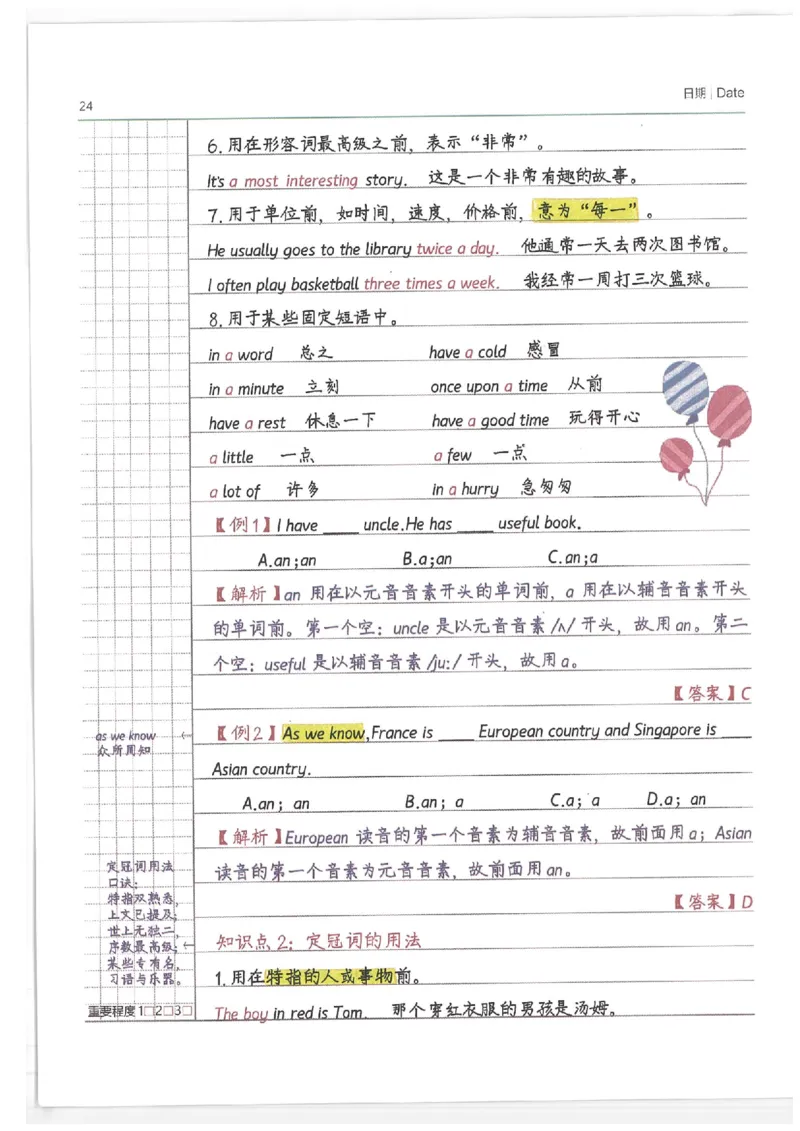 24
日期 | Date
6.用在形容词最高级之前，表示“非常”。
It's a most interesting story. 这是一个非常有趣的故事。
7.用于单位前，如时间，速度，价格前，意为“每一”。
He usually goes to the library twice a day. 他通常一天去两次图书馆。
I often play basketball three times a week. 我经常一周打三次篮球。
8.用于某些固定短语中。
in a word 总之 have a cold 感冒
in a minute 立刻 once upon a time 从前
have a rest 休息一下 have a good time 玩得开心
a little 一点 a few 一点
a lot of 许多 in a hurry 急匆匆
【例1】I have ____ uncle.He has ____ useful book.
A.an;an B.a;an C.an;a
【解析】an 用在以元音音素开头的单词前，a 用在以辅音音素开头
的单词前。第一个空：uncle 是以元音音素/ʌ/开头，故用an。第二
个空：useful 是以辅音音素/ju:/开头，故用a。
【答案】C
as we know
众所周知
【例2】As we know,France is ____ European country and Singapore is ____
Asian country.
A.an；an B.an；a C.a；a D.a；an
【解析】European 读音的第一个音素为辅音音素，故前面用a；Asian
读音的第一个音素为元音音素，故前面用an。
【答案】D
定冠词用法
口诀：
特指双熟悉，
上文已提及；
世上无独二，
序数最高级；
某些专有名，
习语与乐器。
知识点2：定冠词的用法
1.用在特指的人或事物前。
The boy in red is Tom. 那个穿红衣服的男孩是汤姆。
重要程度 1□2□3□